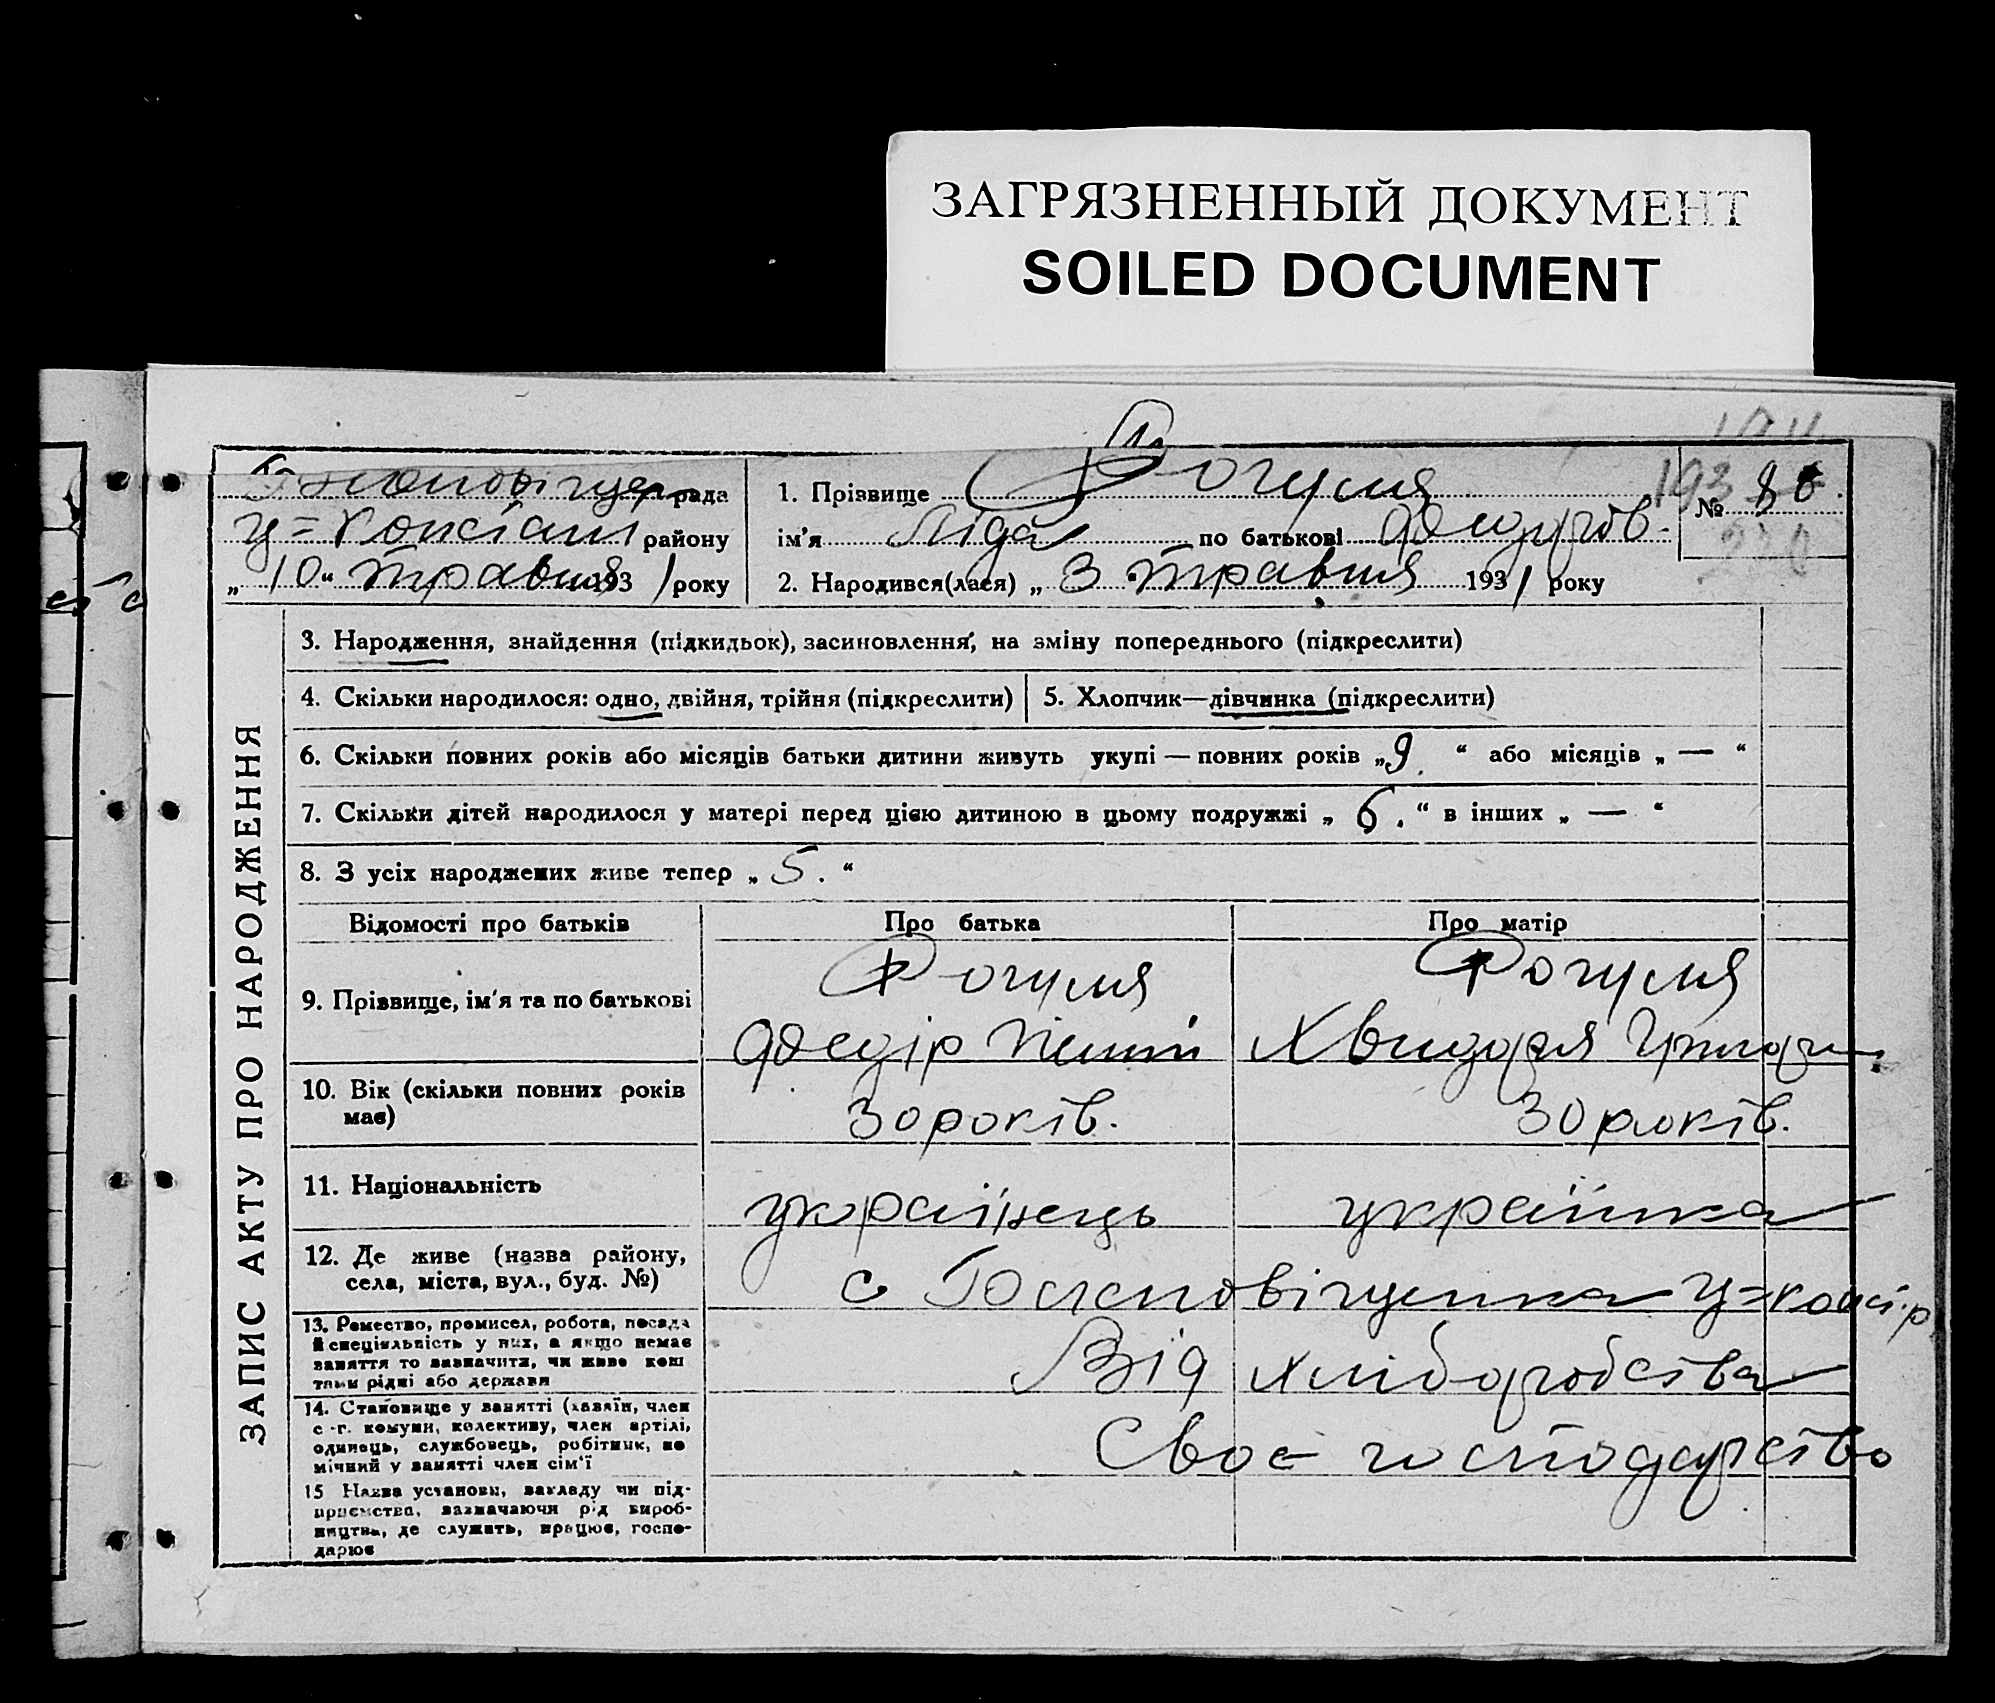 ЗАГРЯЗНЕННЫЙ ДОКУМЕНТ
SOILED DOCUMENT
рада
району
„10“ травня 1931 року
1. Прізвище Фогуля
ім'я Ліда по батькові
2. Народився(лася) „3“ травня 1931 року
№ 86.
ЗАПИС АКТУ ПРО НАРОДЖЕННЯ
3. Народження, знайдення (підкидьок), засиновлення, на зміну попереднього (підкреслити)
4. Скільки народилося: одно, двійня, трійня (підкреслити)
5. Хлопчик—дівчинка (підкреслити)
6. Скільки повних років або місяців батьки дитини живуть укупі — повних років „9“ або місяців „—“
7. Скільки дітей народилося у матері перед цією дитиною в цьому подружжі „6.“ в інших „—“
8. З усіх народжених живе тепер „5.“
Відомості про батьків Про батька Про матір
9. Прізвище, ім'я та по батькові
Фогуля Фогуля
Федір Хвидоря
10. Вік (скільки повних років має)
30 років. 30 років.
11. Національність
українець українка
12. Де живе (назва району, села, міста, вул., буд. №)
с
13. Ремество, промисел, робота, посада й спеціяльність у них, а якщо немає заняття то зазначити, чи живе коштами рідні або держави
Від хліборобства
14. Становище у занятті (хазяїн, член с.-г. комуни, колективу, член артілі, одинець, службовець, робітник, помічний у занятті член сім'ї
Своє господарство
15 Назва установи, закладу чи підприємства, зазначаючи рід виробництва, де служить, працює, господарює